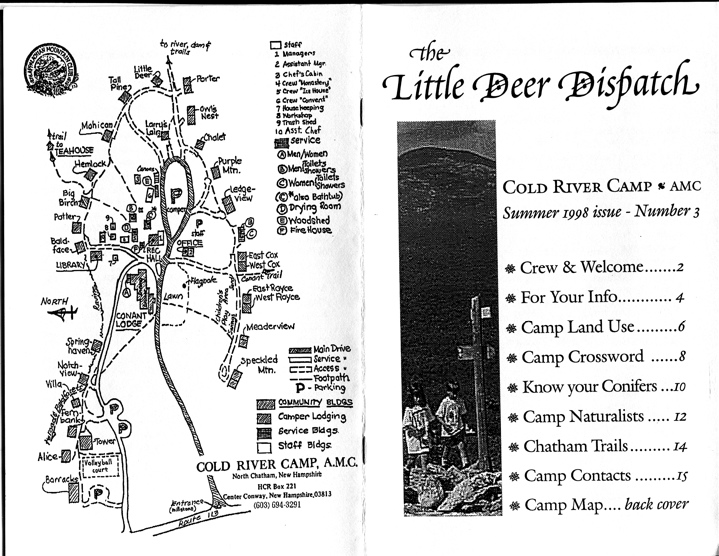 APPALACHIAN MOUNTAIN CLUB
to river, dam &
trails
Little
Deer
Porter
Tall
Pine
Owl's
Nest
Mohican
Larry's
Loig
Chalet
trail
to
TEAHOUSE
Hemlock
Purple
Mtn.
Ledge-
view
Big
Birch
P
camper
Potter
P
staff
Bald-
face
OFFICE
REC
HALL
LIBRARY
East Cox
West Cox
Conant Trail
Flagpole
NORTH
East Royce
West Royce
CONANT
LODGE
Lawn
Meaderview
Spring-
haven
Notch-
view
Speckled
Mtn.
Villa
Fern-
bank
Tower
Alice
Volleyball
court
Barracks
P
Entrance
(millstone)
Route 113
Staff
1 Managers
2 Assistant Mgr.
3 Chef's Cabin
4 Crew "Monastery"
5 Crew "Ice House"
6 Crew "Convent"
7 Housekeeping
8 Workshop
9 Trash Shed
10 Asst. Chef
Service
A Men/Women
Toilets
B Men Showers
C Women Toilets
Showers
(C* also Bathtub)
D Drying Room
E Woodshed
F Fire House
Main Drive
Service "
Access "
Footpath
P - Parking
COMMUNITY BLDGS
Camper Lodging
Service Bldgs.
Staff Bldgs.
COLD RIVER CAMP, A.M.C.
North Chatham, New Hampshire
HCR Box 221
Center Conway, New Hampshire,03813
(603) 694-3291
the
Little Deer Dispatch
COLD RIVER CAMP AMC
Summer 1998 issue - Number 3
Crew & Welcome.......2
For Your Info............ 4
Camp Land Use.........6
Camp Crossword ......8
Know your Conifers ...10
Camp Naturalists ..... 12
Chatham Trails.........14
Camp Contacts .........15
Camp Map.... back cover